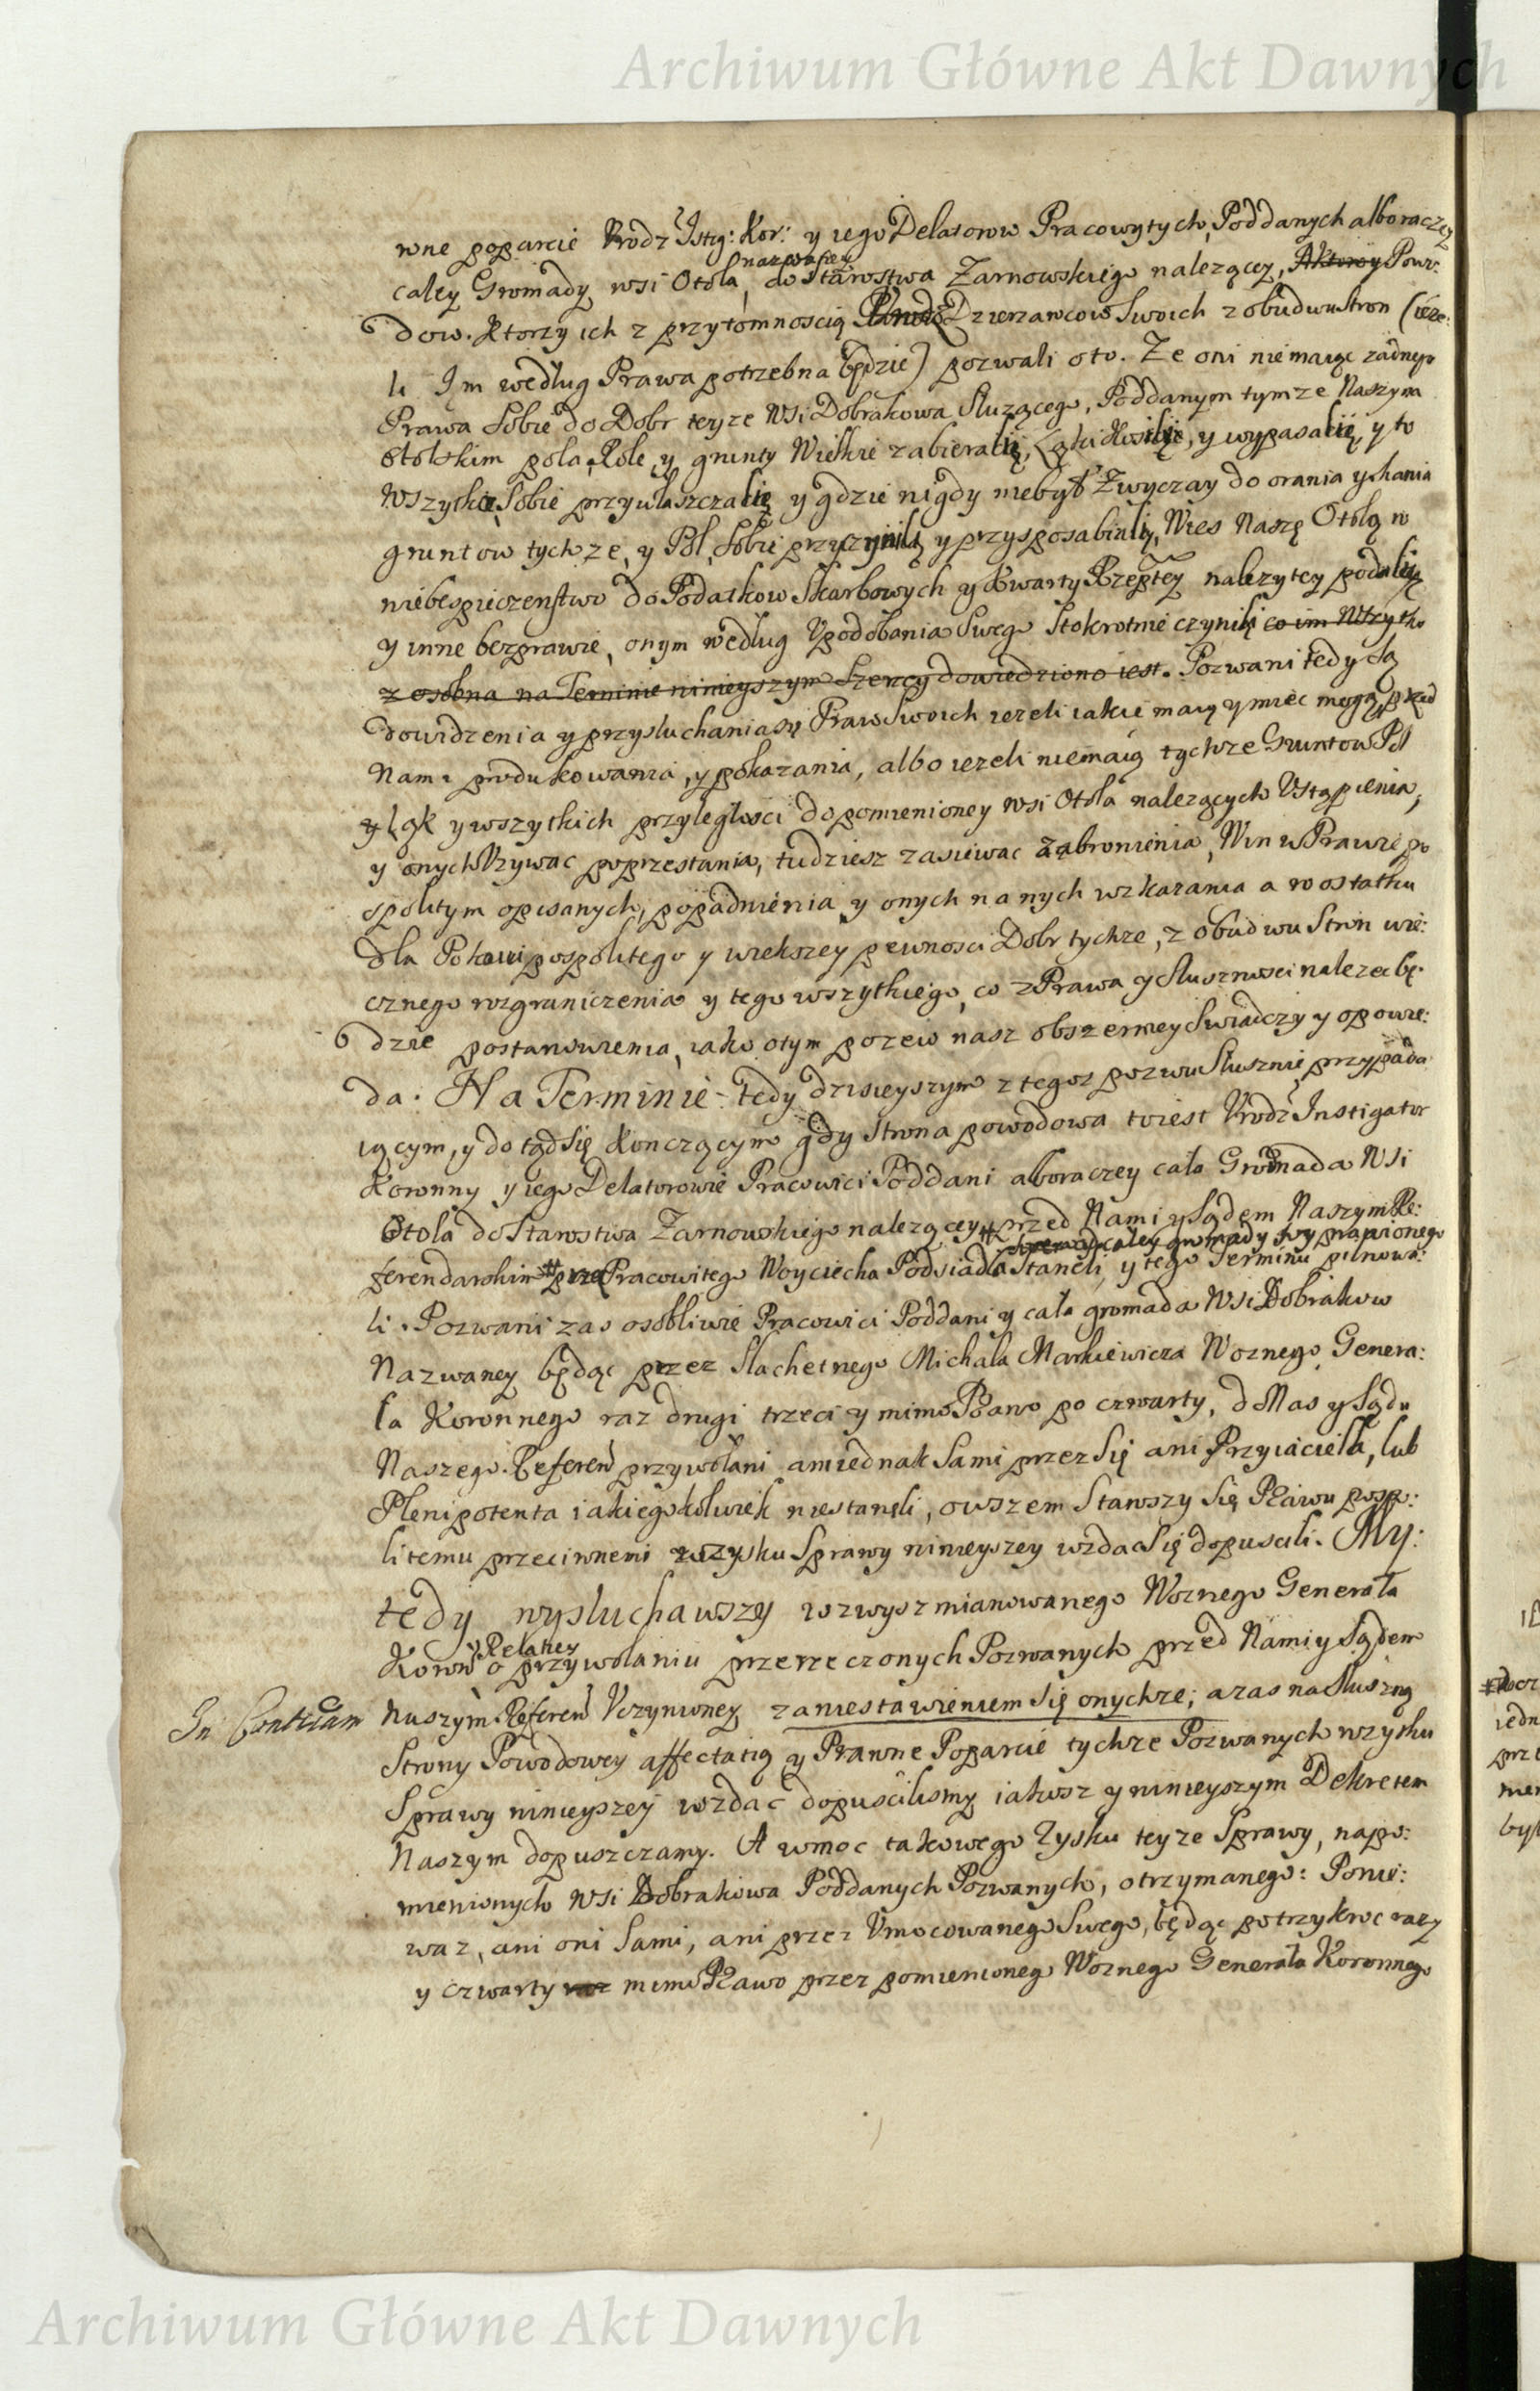 Archiwum Główne Akt Dawnych
wne poparcie Urodz Istig: Kor: y iego Delatorow Pracowytych Poddanych albo raczey
nazwaney
całey Gromady wsi Otola, do Starostwa Zarnowskiego nalezącey, Powo:
dow. Ktorzy ich z przytomnoscią Dzierzawcow Swoich z obudwu Stron (ieze:
li Im według Prawa potrzebna będzie) pozwali oto. Ze oni niemaiąc zadnego
Prawa Sobie do Dobr teyze Wsi Dobrakowa Słuzącego, Poddanym tymze Naszym
Otolskim pola, Role, y grunty Wielkie zabierali, Łąki Kosili, y wypasali, y to
Wszytko Sobie przywłaszczali y gdzie nigdy niebył Zwyczay do orania y siania
gruntow tychze, y Pol, Sobie przyczynili y przysposabiali, Wies Naszę Otolą w
niebespieczenstwo do Podatkow Skarbowych y Kwarty Rzeptey nalezytey podali
y inne bezprawie, onym według Upodobania Swego Stokrotnie czynili co im Wszytko
z osobna na Terminie ninieyszym Szerzey dowiedziono iest. Pozwani tedy Są
dowidzenia y przysłuchania się Praw Swoich iezeli iakie maią y miec mogą, przed
Nami produkowania, y pokazania, albo iezeli niemaią tychze Gruntow Pol
y Łąk y wszytkich przyległosci do pomienioney wsi Otola nalezących Ustąpienia,
y onych Uzywac poprzestania, tudziesz zasiewac zabronienia, Win w Prawie po
spolitym opisanych, popadnienia y onych na nych wzkazania a wostatku
dla Pokoiu pospolitego y wiekszey pewnosci Dobr tychze, z obudwu Stron wie:
cznego rozgraniczenia y tego wszytkiego, co z Prawa y Słusznosci nalezec bę:
dzie postanowienia, iako otym pozew nasz obszerniey Swiadczy y opowie:
da. Na Terminie tedy dzisieyszym z tegoz pozwu Słusznie przypada
iącym, y dotąd się Konczącym gdy Strona powodowa toiest Urodz Instigator
Koronny y iego Delatorowie Pracowici Poddani albo raczey cała Gromada Wsi
Otola do Starostwa Zarnowskiego nalezącey # przed Nami y Sądem Naszym Re:
całey gromady wyprawionego
ferendarskim # prze Pracowitego Woyciecha Podsiadła Staneli, y tego Terminu pilnowa:
li. Pozwani zas osobliwie Pracowici Poddani y cała gromada Wsi Dobrakow
Nazwaney będąc przez Slachetnego Michała Markiewicza Woznego Genera:
ła Koronnego raz drugi trzeci y mimo Prawo po czwarty, do Nas y Sądu
Naszego Referen przywołani aniednak Sami przez Się ani Przyiaciela, lub
Plenipotenta iakiegokolwiek niestaneli, owszem Stawszy Się Prawu pospo:
litemu przeciwnemi wzysku Sprawy ninieyszey wzdac Się dopuscili. My:
tedy wysłuchawszy wzwysz mianowanego Woznego Generała
y Relatiey
Koron o przywołaniu przerzeczonych Pozwanych przed Nami y Sądem
In Contuam Naszym Referen Uczynioney zaniestawieniem Się onychze; azas na Słuszną
Strony Powodowey affectatią y Prawne Poparcie tychze Pozwanych wzysku
Sprawy ninieyszey wzdac dopusciliismy iakosz y ninieyszym Dekretem
Naszym dopuszczamy. A wmoc takowego Zysku teyze Sprawy, napo:
mienionych wsi Dobrakowa Poddanych Pozwanych, otrzymanego: Ponie:
waz, ani oni Sami, ani przez Umocowanego Swego, będąc potrzykroc razy
y czwarty raz mimo Prawo przez pomienionego Woznego Generała Koronnego
Archiwum Główne Akt Dawnych